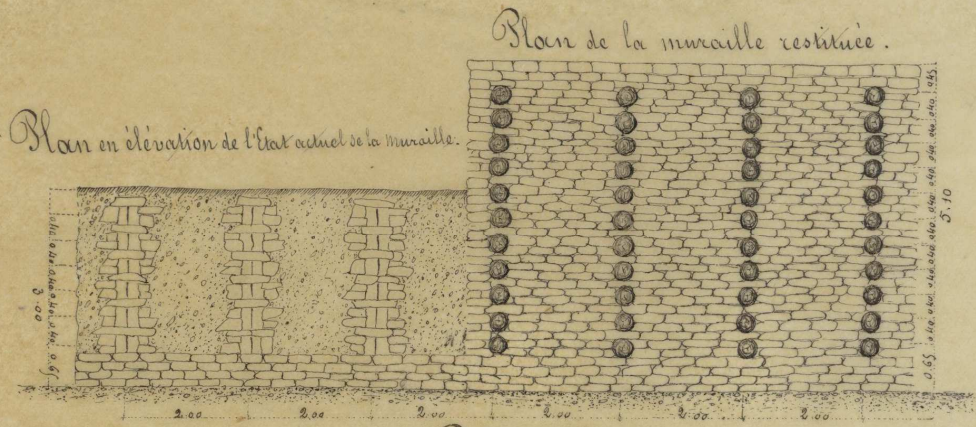 Plan de la muraille restituée.
Plan en élévation de l'Etat actuel de la muraille.
0.45
0.40 0.40 0.40 0.40 0.40 0.40 0.40 0.40 0.40 0.40
0.65
5.10
0.40 0.40 0.40 0.40 0.40
0.65
3.00
2.00 2.00 2.00 2.00 2.00 2.00